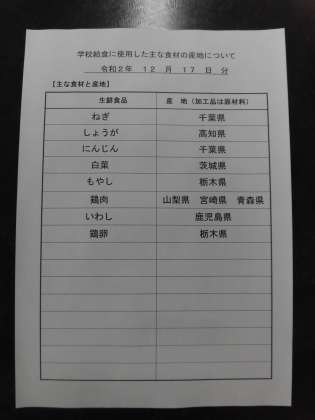 学校給食に使用した主な食材の産地について
令和2年 12 月 17 日 分
【主な食材と産地】
生鮮食品 産 地（加工品は原材料）
ねぎ 千葉県
しょうが 高知県
にんじん 千葉県
白菜 茨城県
もやし 栃木県
鶏肉 山梨県 宮崎県 青森県
いわし 鹿児島県
鶏卵 栃木県